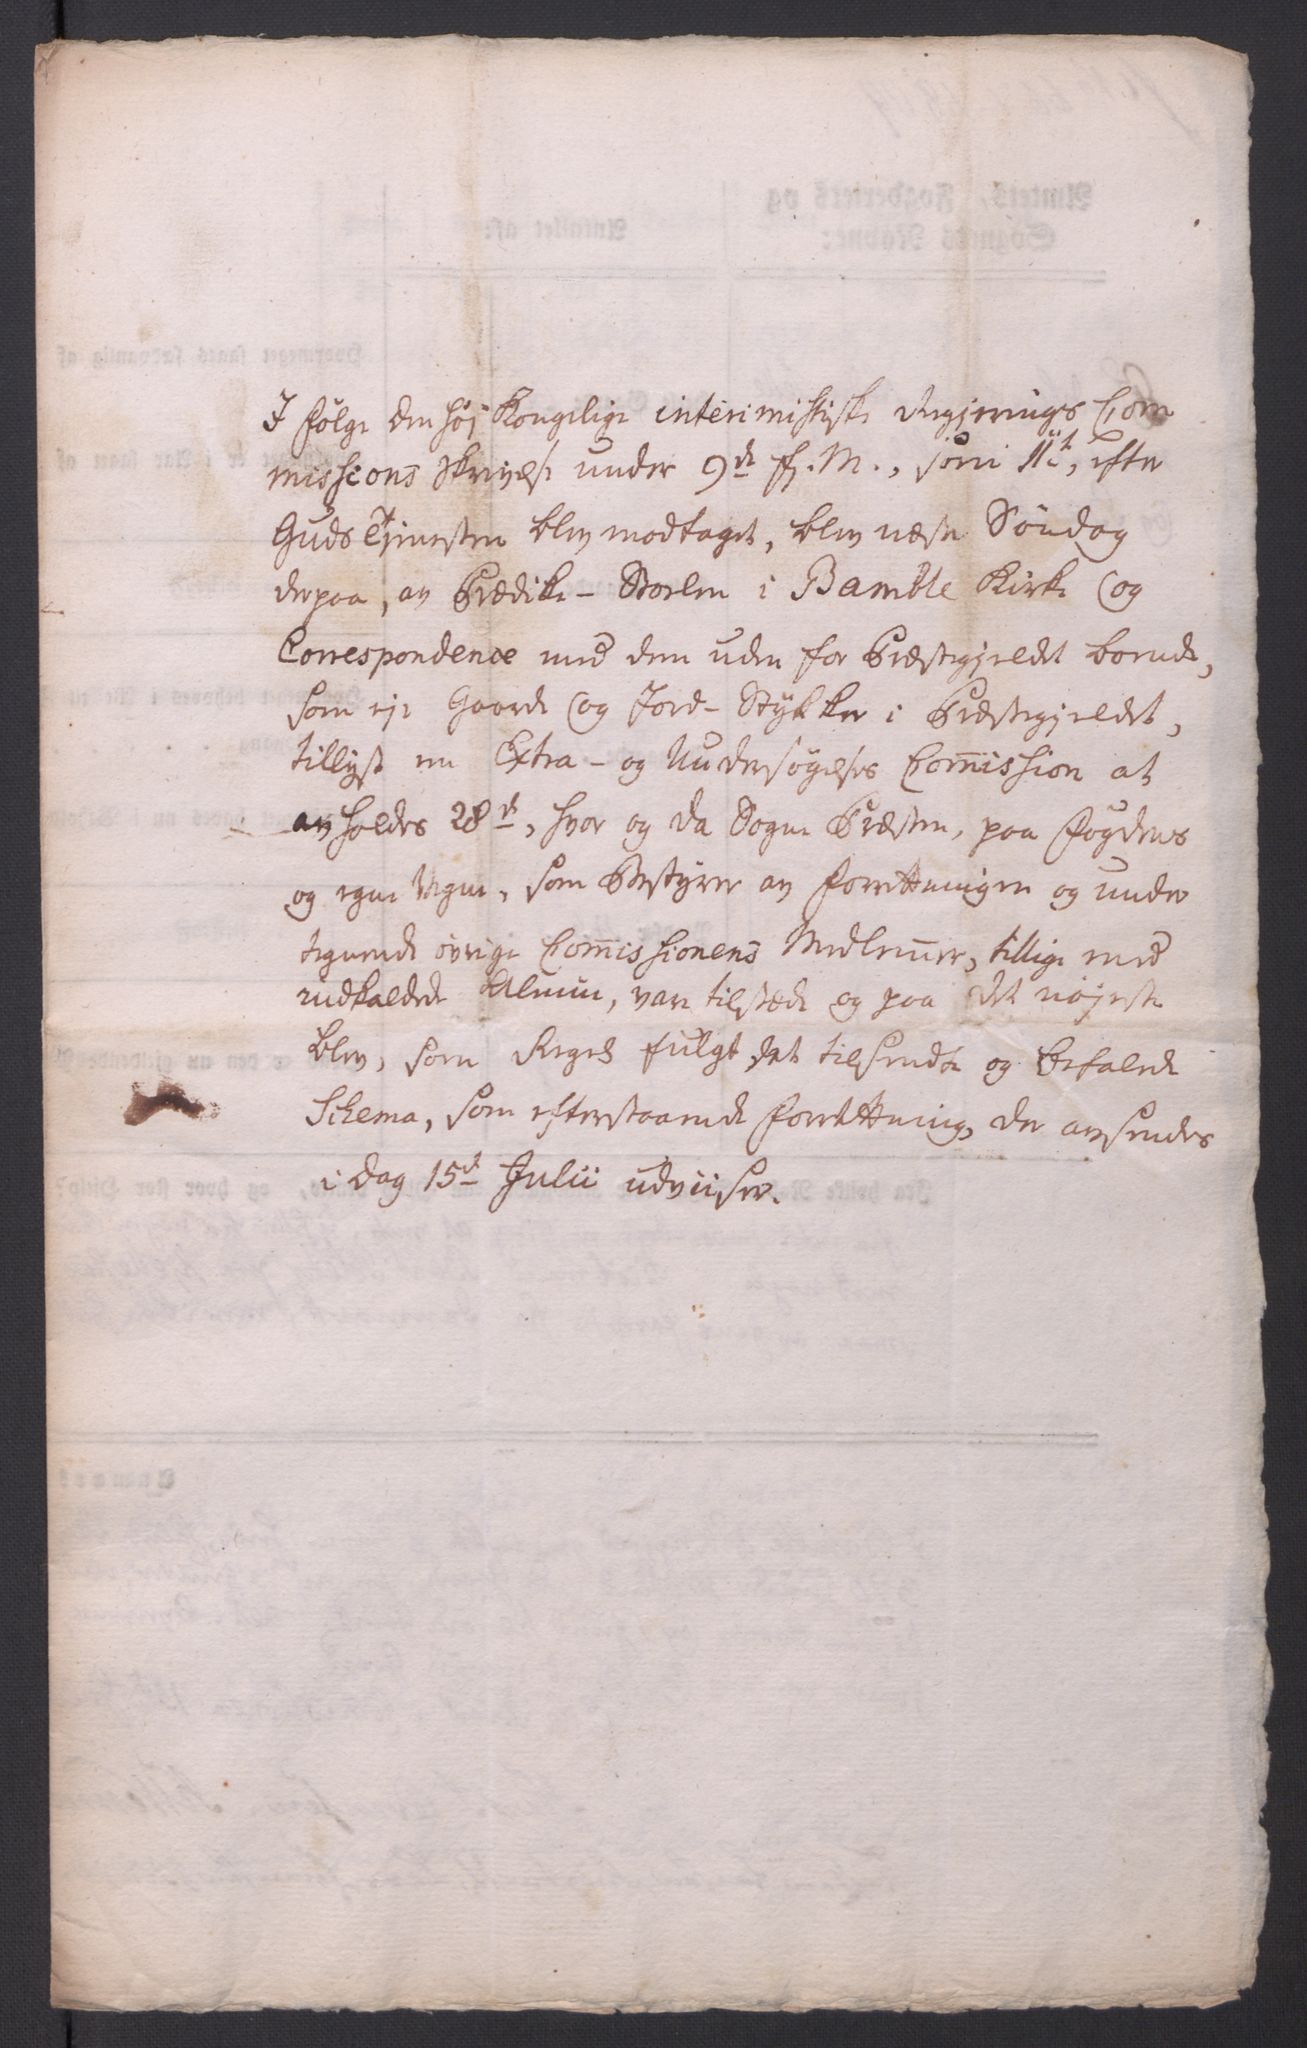 I følge den høj Kongelige interimistiske Regjerings Com
missions Skrivelse under 9de f. M., som 11te, efter
Guds Tjenesten blev modtaget, blev næste Søndag
derpaa, av Prædike-Stolen i Bamble Kirke (og
Correspondence med dem uden for Præstegjeldet boende,
som eje Gaarde og Jord-Stykker i Præstegjeldet,
tillyst en Extra- og Undersøgelses Com̄ission at
avholdes 28de, hvor og da Sogne Præsten, paa Fogdens
og egne Vegne, som Bestyrer av Forretningen og under
tegnende øvrige Com̄issionens Medlem̄er, tillige med
indkaldede Almue, vare tilstæde og paa det nøjeste
blev, som Regel fulgt det tilsendte og befalede
Schema, som efterstaaende Forretning, der avsendes
i Dag 15de Julii udviiser.